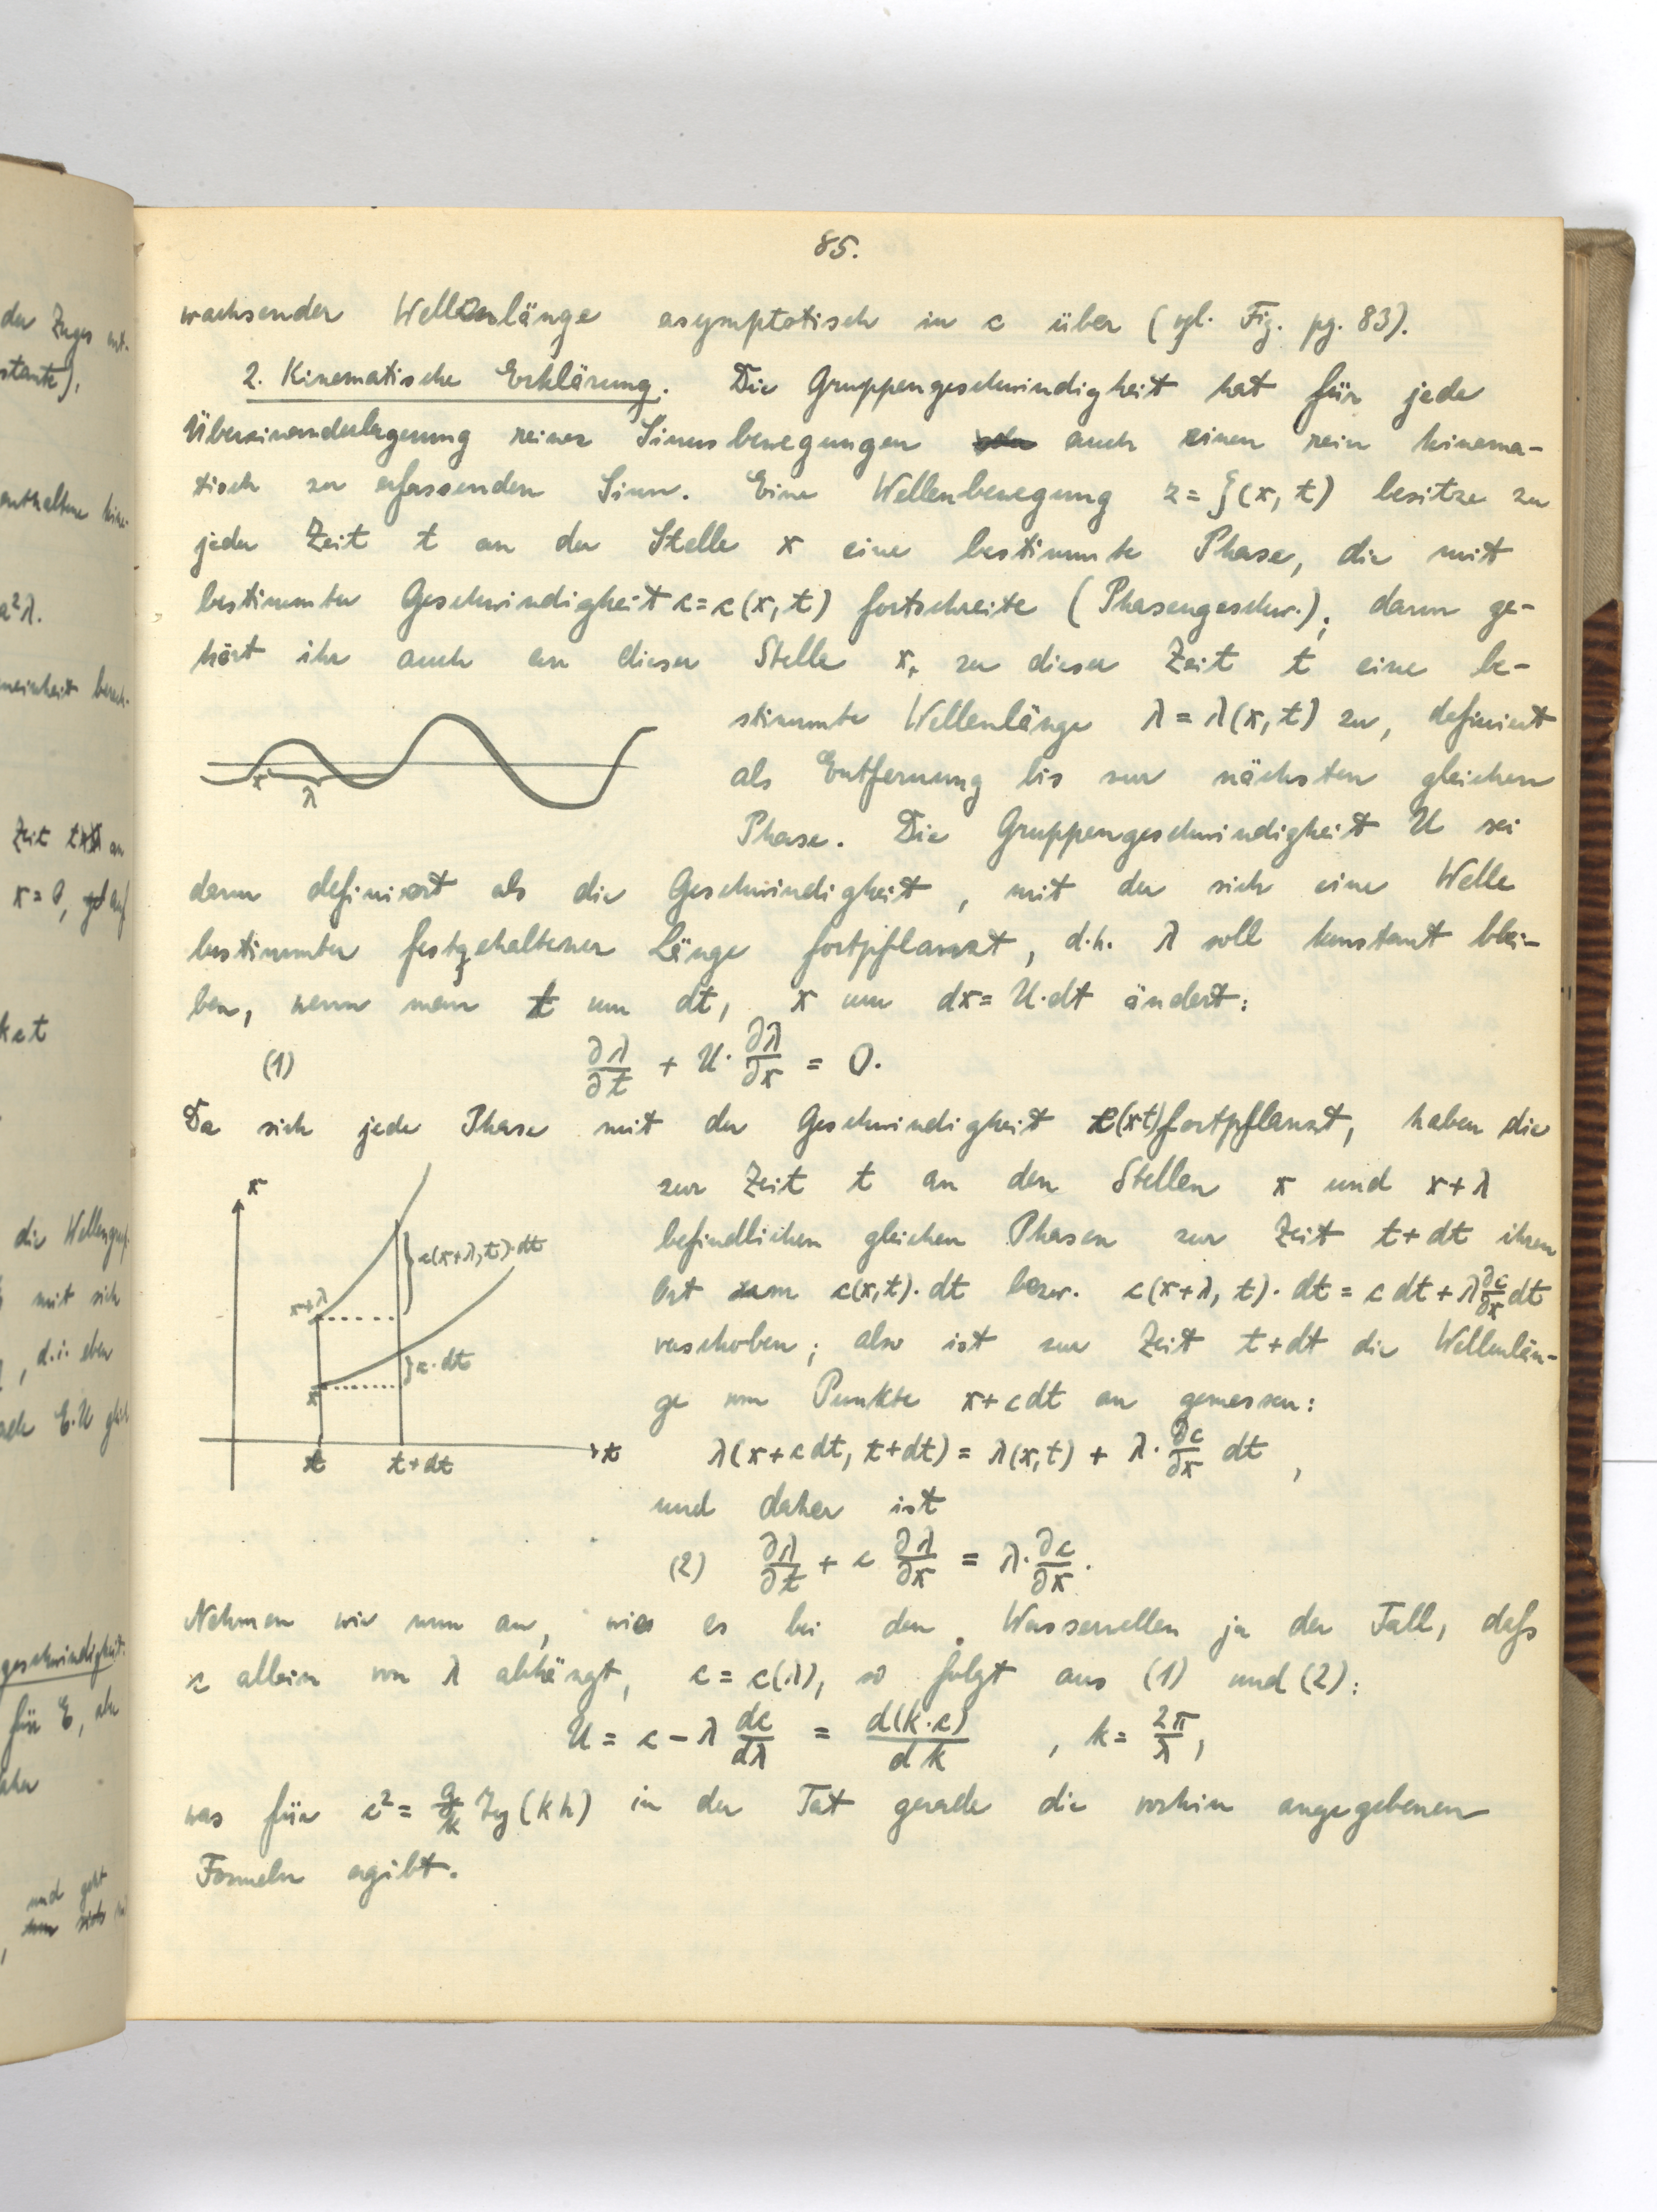 85.
wachsender Wellenlänge asymptotisch in c über (vgl. Fig. pg. 83).
2. Kinematische Erklärung. Die Gruppengeschwindigkeit hat für jede
Übereinanderlagerung reiner Sinusbewegungen auch einen rein kinema-
tisch zu erfassenden Sinn. Eine Wellenbewegung z = ζ(x, t) besitze zu
jeder Zeit t an der Stelle x eine bestimmte Phase, die mit
bestimmter Geschwindigkeit c = c(x, t) fortschreite (Phasengeschw.); dann ge-
hört ihr auch an dieser Stelle x, zu dieser Zeit t eine be-
stimmte Wellenlänge λ = λ(x, t) zu, definiert
als Entfernung bis zur nächsten gleichen
Phase. Die Gruppengeschwindigkeit U sei
x
λ
dann definiert als die Geschwindigkeit, mit der sich eine Welle
bestimmter festgehaltener Länge fortpflanzt, d.h. λ soll konstant blei-
ben, wenn man t um dt, x um dx = U·dt ändert:
(1) ∂λ/∂t + U·∂λ/∂x = 0.
Da sich jede Phase mit der Geschwindigkeit c(xt) fortpflanzt, haben die
zur Zeit t an den Stellen x und x+λ
befindlichen gleichen Phasen zur Zeit t+dt ihren
Ort um c(x,t)·dt bezw. c(x+λ, t)·dt = c dt + λ ∂c/∂x dt
verschoben; also ist zur Zeit t+dt die Wellenlän-
ge vom Punkte x+cdt an gemessen:
λ(x+cdt, t+dt) = λ(x,t) + λ·∂c/∂x dt,
und daher ist
(2) ∂λ/∂t + c ∂λ/∂x = λ·∂c/∂x.
x
c(x+λ,t)·dt
x+λ
c·dt
x
t
t+dt
t
Nehmen wir nun an, wie es bei den Wasserwellen ja der Fall, daſs
c allein von λ abhängt, c = c(λ), so folgt aus (1) und (2):
U = c − λ dc/dλ = d(k·c)/dk , k = 2π/λ,
was für c² = g/k Tg(kh) in der Tat gerade die vorhin angegebenen
Formeln ergibt.